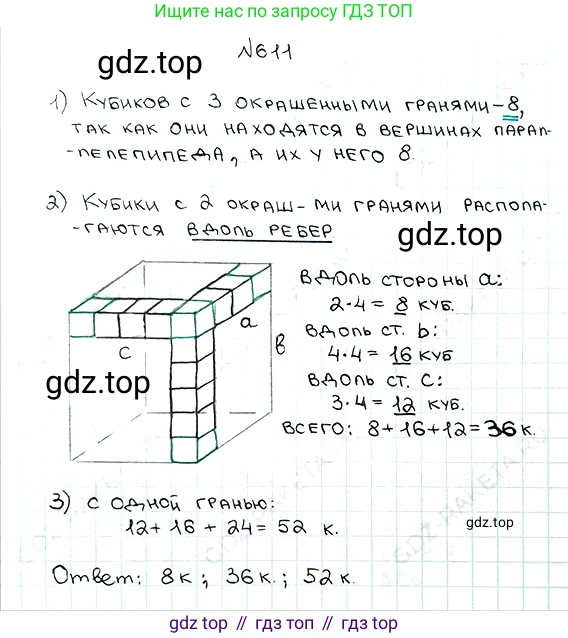 Ищите по запросу ГДЗ ТОП
№611
gdz.top
1) Кубиков с 3 окрашенными гранями-8,
так как они находятся в вершинах парал-
-лелепипеда, а их у него 8.
2) Кубики с 2 окраш-ми гранями распола-
-гаются вдоль ребер.
gdz.top
вдоль стороны a:
2·4= 8 куб.
вдоль ст. b:
4·4= 16 куб
вдоль ст. c:
3·4= 12 куб.
всего: 8+16+12=36 к.
a
в
c
gdz.top
3) с одной гранью:
12+ 16 + 24= 52 к.
gdz.top
Ответ: 8к; 36к.; 52к.
gdz.top // гдз топ // гдз.top